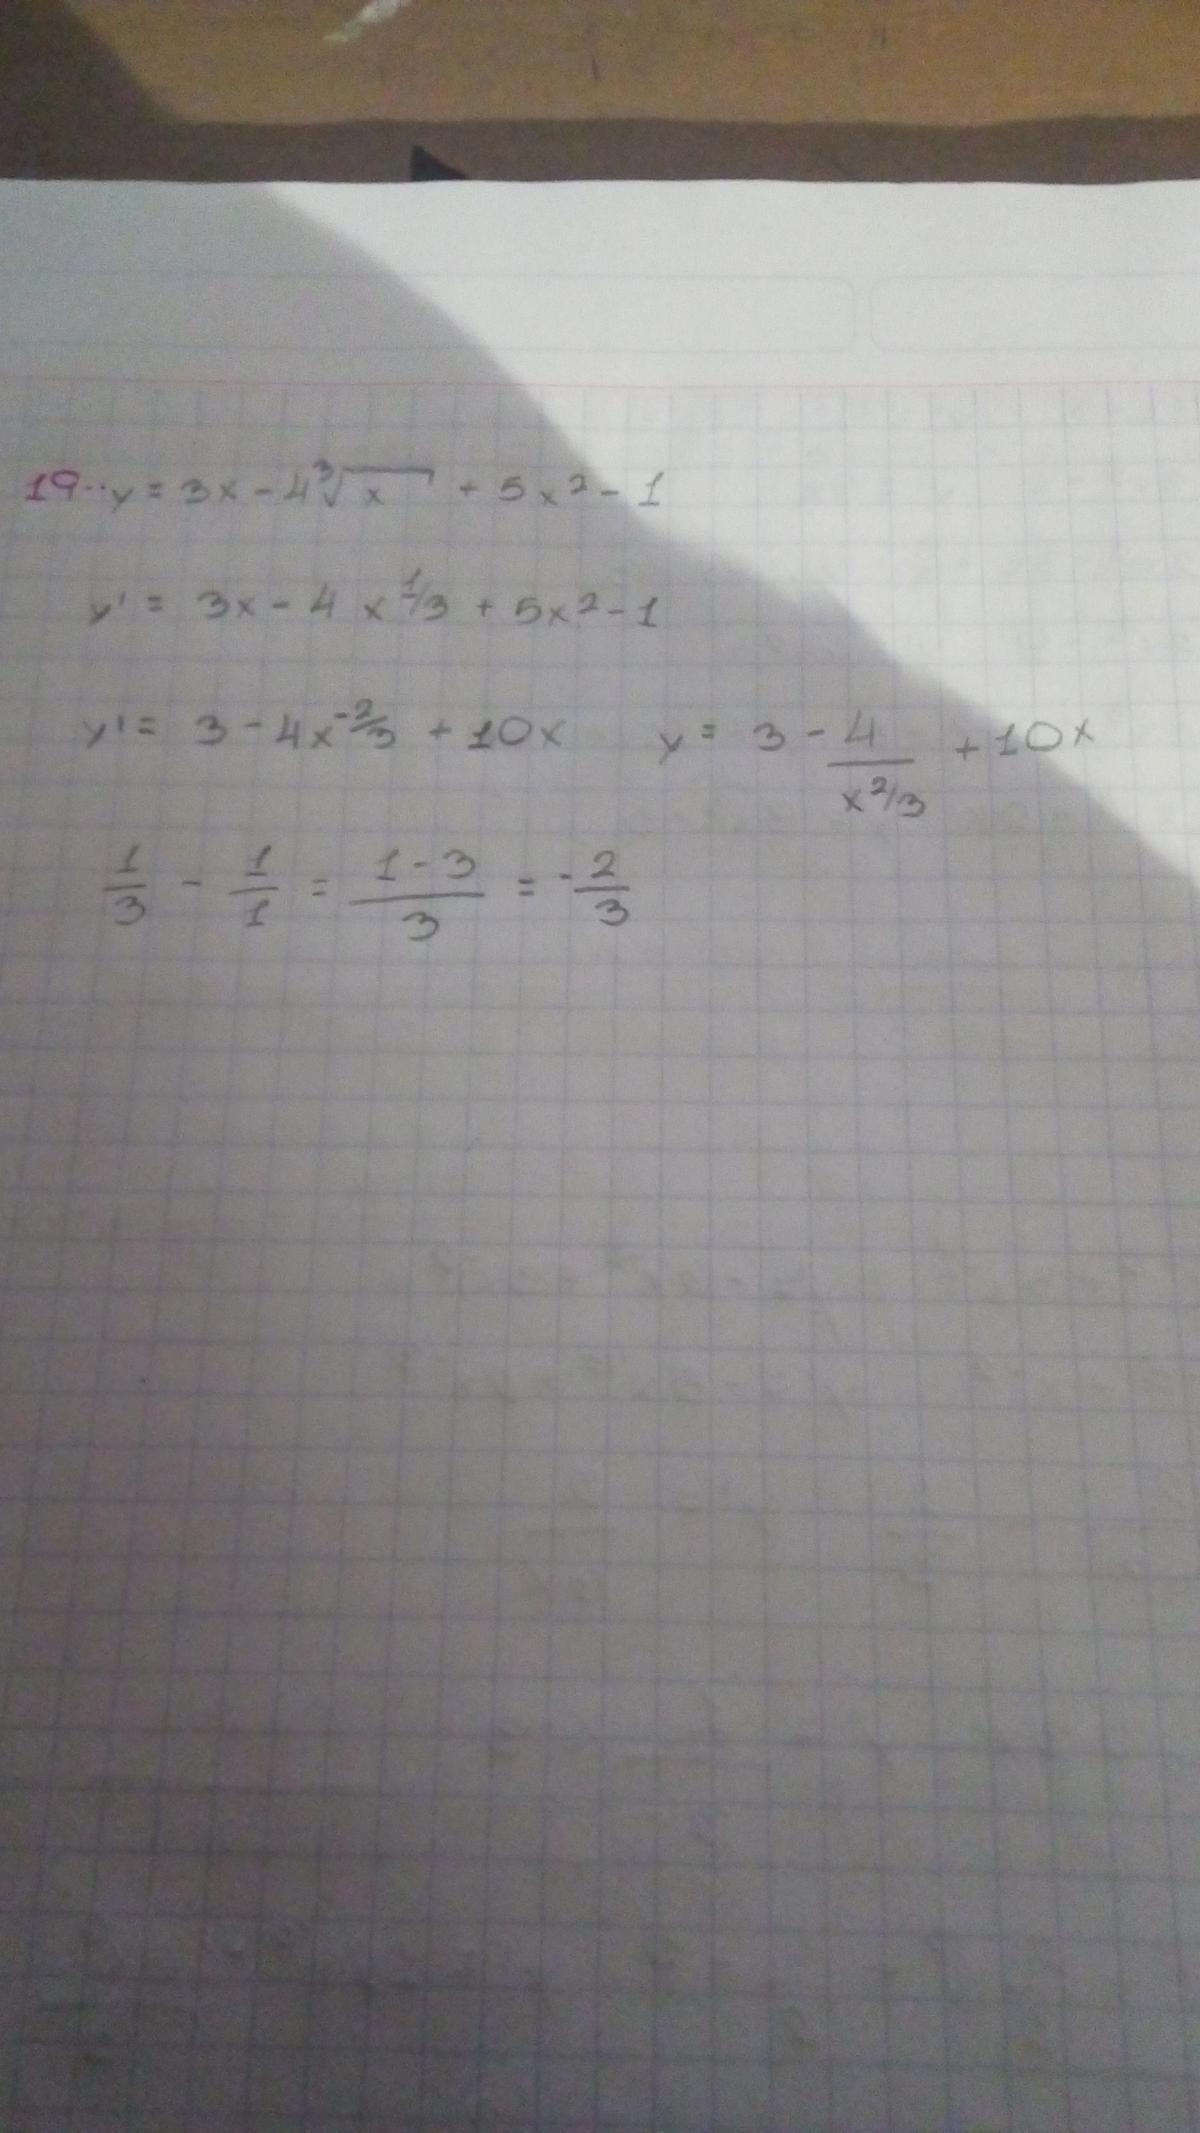 19.. y = 3x - 4∛x + 5x² - 1
y' = 3x - 4 x^1/3 + 5x² - 1
y' = 3 - 4x^-2/3 + 10x    y = 3 - 4/x^2/3 + 10x
1/3 - 1/1 = (1 - 3)/3 = -2/3